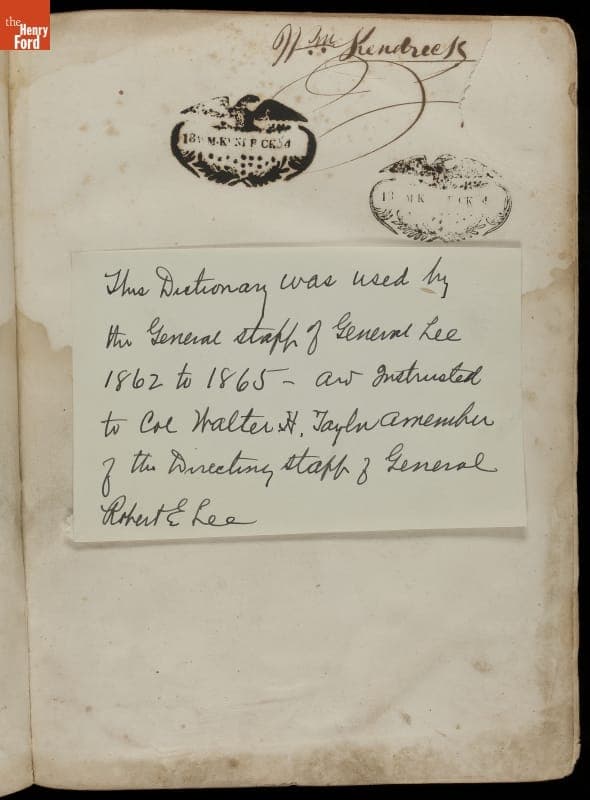 the
Henry
Ford
Wm Kendrick
This Dictionary was used by
the General staff of General Lee
1862 to 1865 – and Instrusted
to Col Walter H. Taylor a member
of the Directing staff of General
Robert E Lee